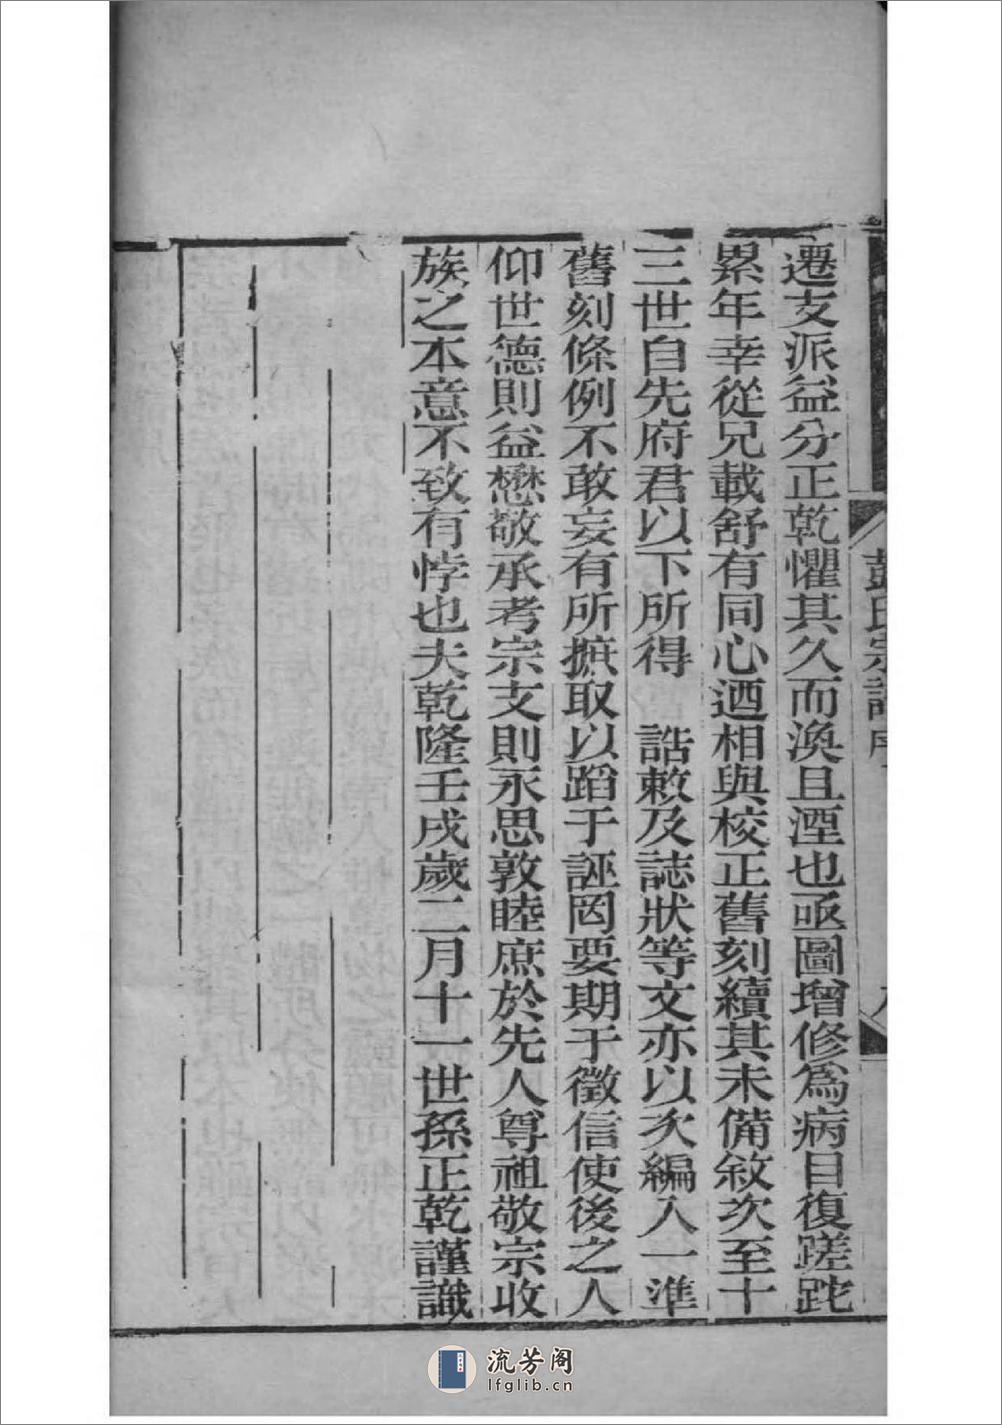 遷支派益分正乾懼其久而渙且湮也亟圖增修為病目復蹉跎
累年幸從兄載舒有同心迺相與校正舊刻續其未備敘次至十
三世自先府君以下所得　誥敕及誌狀等文亦以次編入一準
舊刻條例不敢妄有所摭取以蹈于誣罔要期于徵信使後之人
仰世德則益懋敬承考宗支則永思敦睦庶於先人尊祖敬宗收
族之本意不致有悖也夫乾隆壬戌歲二月十一世孫正乾謹識
彭氏宗譜序
流芳阁
lfglib.cn